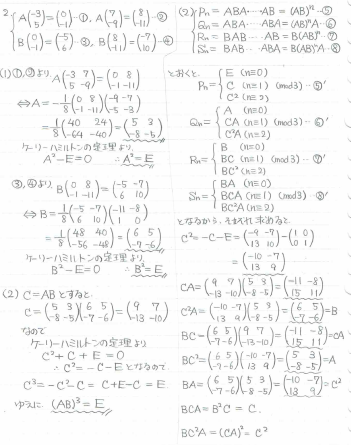 2. { A(-3 5) = (0 -1) …①, A(7 -9) = (8 -11) …②
B(0 -1) = (-5 6) …③, B(8 -11) = (-7 10) …④
(1) ①,②より, A(-3 7 5 -9) = (0 8 -1 -11)
⇔ A = -1/8 (0 8 -1 -11)(-9 -7 -5 -3)
= -1/8 (-40 -24 64 40) = (5 3 -8 -5)
ケーリーハミルトンの定理より
A²-E=O ∴ A²=E
③,④より, B(0 8 -1 -11) = (-5 -7 6 10)
⇔ B = 1/8 (-5 -7 6 10)(-11 -8 1 0)
= 1/8 (48 40 -56 -48) = (6 5 -7 -6)
ケーリーハミルトンの定理より
B²-E=O ∴ B²=E
(2) C=ABとすると
C = (5 3 -8 -5)(6 5 -7 -6) = (9 7 -13 -10)
なので
ケーリーハミルトンの定理より
C²+C+E=O
∴ C²=-C-E となるので
C³=-C²-C = C+E-C = E
ゆえに (AB)³=E
(2) { Pn = ABA…AB = (AB)ⁿ …⑤
Qn = ABA…ABA = (AB)ⁿA …⑥
Rn = BAB…AB = B(AB)ⁿ …⑦
Sn = BAB…ABA = B(AB)ⁿA …⑧
とおくと、
Pn = { E (n≡0)
C (n≡1) (mod3) …⑤'
C² (n≡2)
Qn = { A (n≡0)
CA (n≡1) (mod3) …⑥'
C²A (n≡2)
Rn = { B (n≡0)
BC (n≡1) (mod3) …⑦'
BC² (n≡2)
Sn = { BA (n≡0)
BCA (n≡1) (mod3) …⑧'
BC²A (n≡2)
となるから、それぞれ求めると
C²=-C-E = (-9 -7 13 10) - (1 0 0 1)
= (-10 -7 13 9)
CA = (9 7 -13 -10)(5 3 -8 -5) = (-11 -8 15 11)
C²A = (-10 -7 13 9)(5 3 -8 -5) = (6 5 -7 -6) = B
BC = (6 5 -7 -6)(9 7 -13 -10) = (-11 -8 15 11) = CA
BC² = (6 5 -7 -6)(-10 -7 13 9) = (5 3 -8 -5) = A
BA = (6 5 -7 -6)(5 3 -8 -5) = (-10 -7 13 9) = C²
BCA = B²C = C.
BC²A = (CA)² = C²